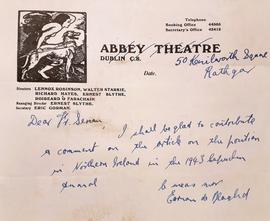 Telephone
Booking Office 44505
Secretary's Office 42418
ABBEY THEATRE
DUBLIN C.8.
Date,
50 Kenilworth Square
Rathgar
Directors LENNOX ROBINSON, WALTER STARKIE,
RICHARD HAYES, ERNEST BLYTHE,
ROIBEÁRD Ó FARACHÁIN
Managing Director ERNEST BLYTHE
Secretary ERIC GORMAN.
Dear Fr. Senan
I shall be glad to contribute
a comment on the article on the position
in Northern Ireland in the 1943 Capuchin
Annual
Is mise
Earnan de Blaghd